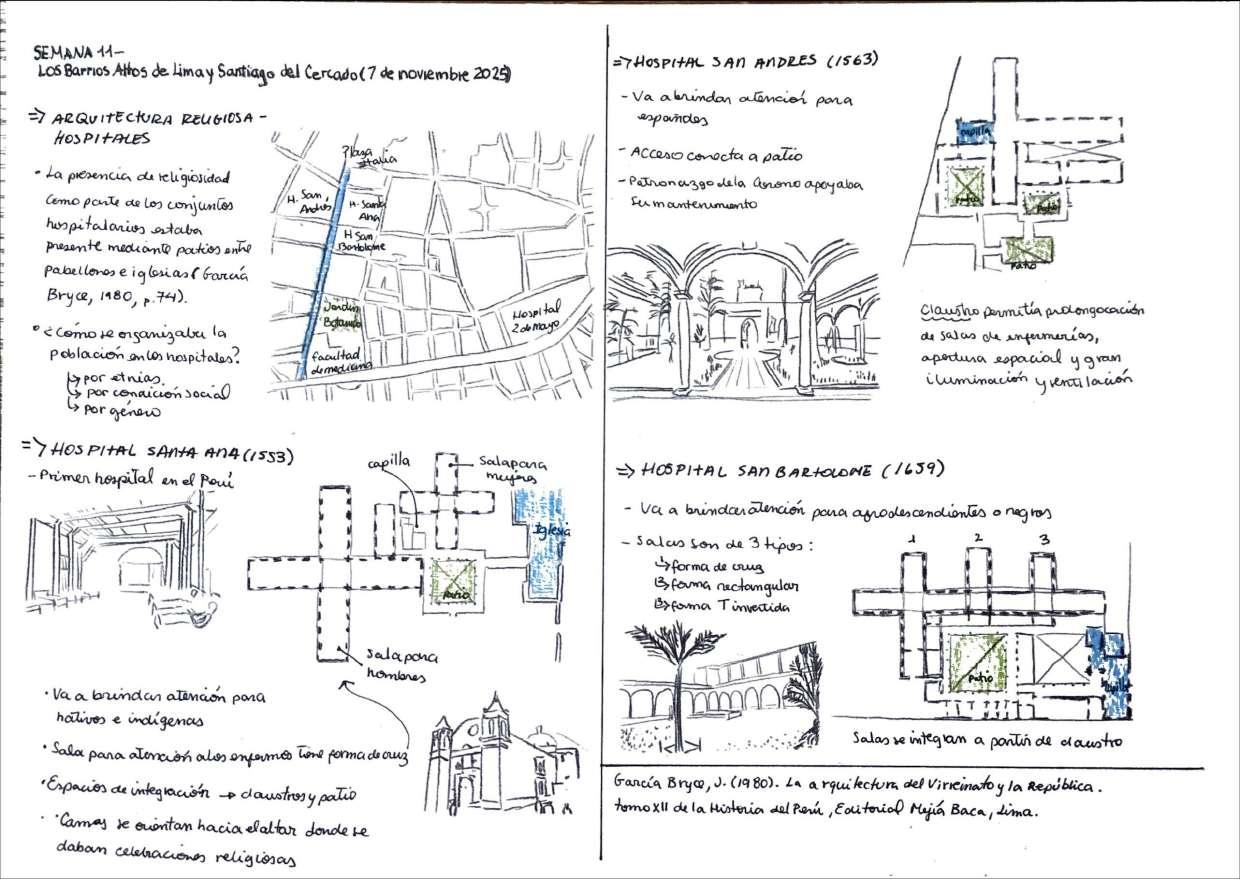 SEMANA 11-
LOS Barrios Altos de Lima y Santiago del Cercado (7 de noviembre 2025)
=> ARQUITECTURA RELIGIOSA -
HOSPITALES
• La presencia de religiosidad
como parte de los conjuntos
hospitalarios estaba
presente mediante patios entre
pabellones e iglesias (García
Bryce, 1980, p.74).
• ¿Cómo se organizaba la
población en los hospitales?
↳ por etnias
↳ por condición social
↳ por género
Plaza
Italia
H. San
Andrés
H. Santa
Ana
H San
Bartolome
Jardín
Botanico
facultad
de medicina
Hospital
2 de Mayo
=> HOSPITAL SANTA ANA (1553)
- Primer hospital en el Perú
capilla
Sala para
mujeres
Iglesia
Patio
Sala para
hombres
• Va a brindar atención para
nativos e indígenas
• Sala para atención a los enfermos tiene forma de cruz
• Espacios de integración → claustros y patio
• Camas se orientan hacia el altar donde se
daban celebraciones religiosas
=> HOSPITAL SAN ANDRES (1563)
- Va a brindar atención para
españoles
- Acceso conecta a patio
- Patronazgo de la Corona apoyaba
su mantenimiento
capilla
Patio
Patio
Patio
Claustro permitía prolongocación
de salas de enfermerías,
apertura espacial y gran
iluminación y ventilación
=> HOSPITAL SAN BARTOLOME (1659)
- Va a brindar atención para afrodescendientes o negros
- Salas son de 3 tipos:
↳ forma de cruz
↳ forma rectangular
↳ forma T invertida
1 2 3
Patio
Capilla
Salas se integran a partir de claustro
García Bryce, J. (1980). La arquitectura del Virreinato y la República.
tomo XII de la Historia del Perú, Editorial Mejía Baca, Lima.